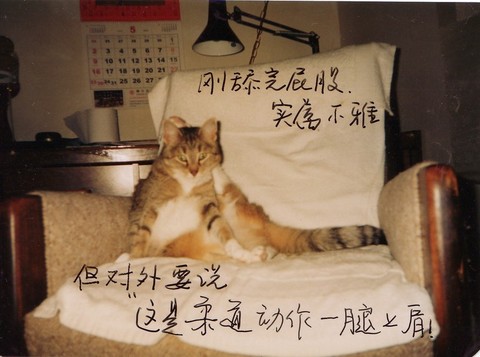 刚舔完屁股.
实属不雅
但对外要说
"这是柔道动作一腿上肩!
5